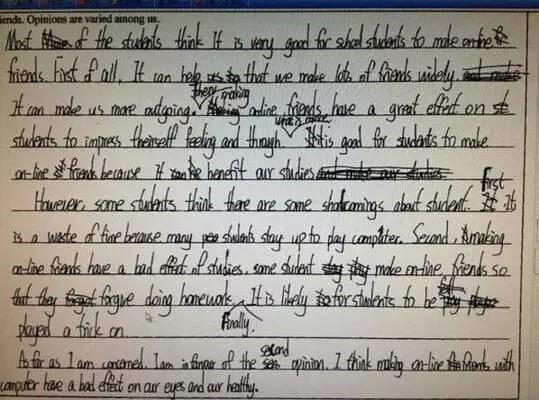 iends. Opinions are varied among us.
Most of the students think It is very good for school students to make on-line
friends. First of all, It can help that we make lots of friends widely.
It can make us more outgoing. Then, making on-line friends have a great effect on
students to impress theirself feeling and through. What's more, It is good for students to make
on-line friends because It benefit our studies
However, some students think there are some shortcomings about student. First It
is a waste of time because many students stay up to play computer. Second, making
on-line friends have a bad effect of studies, some student make on-line friends so
that they forgive doing homework. Finally. It is likely for students to be
played a trick on.
As far as I am concerned, I am in favour of the second opinion. I think making on-line friends with
computer have a bad effect on our eyes and our healthy.